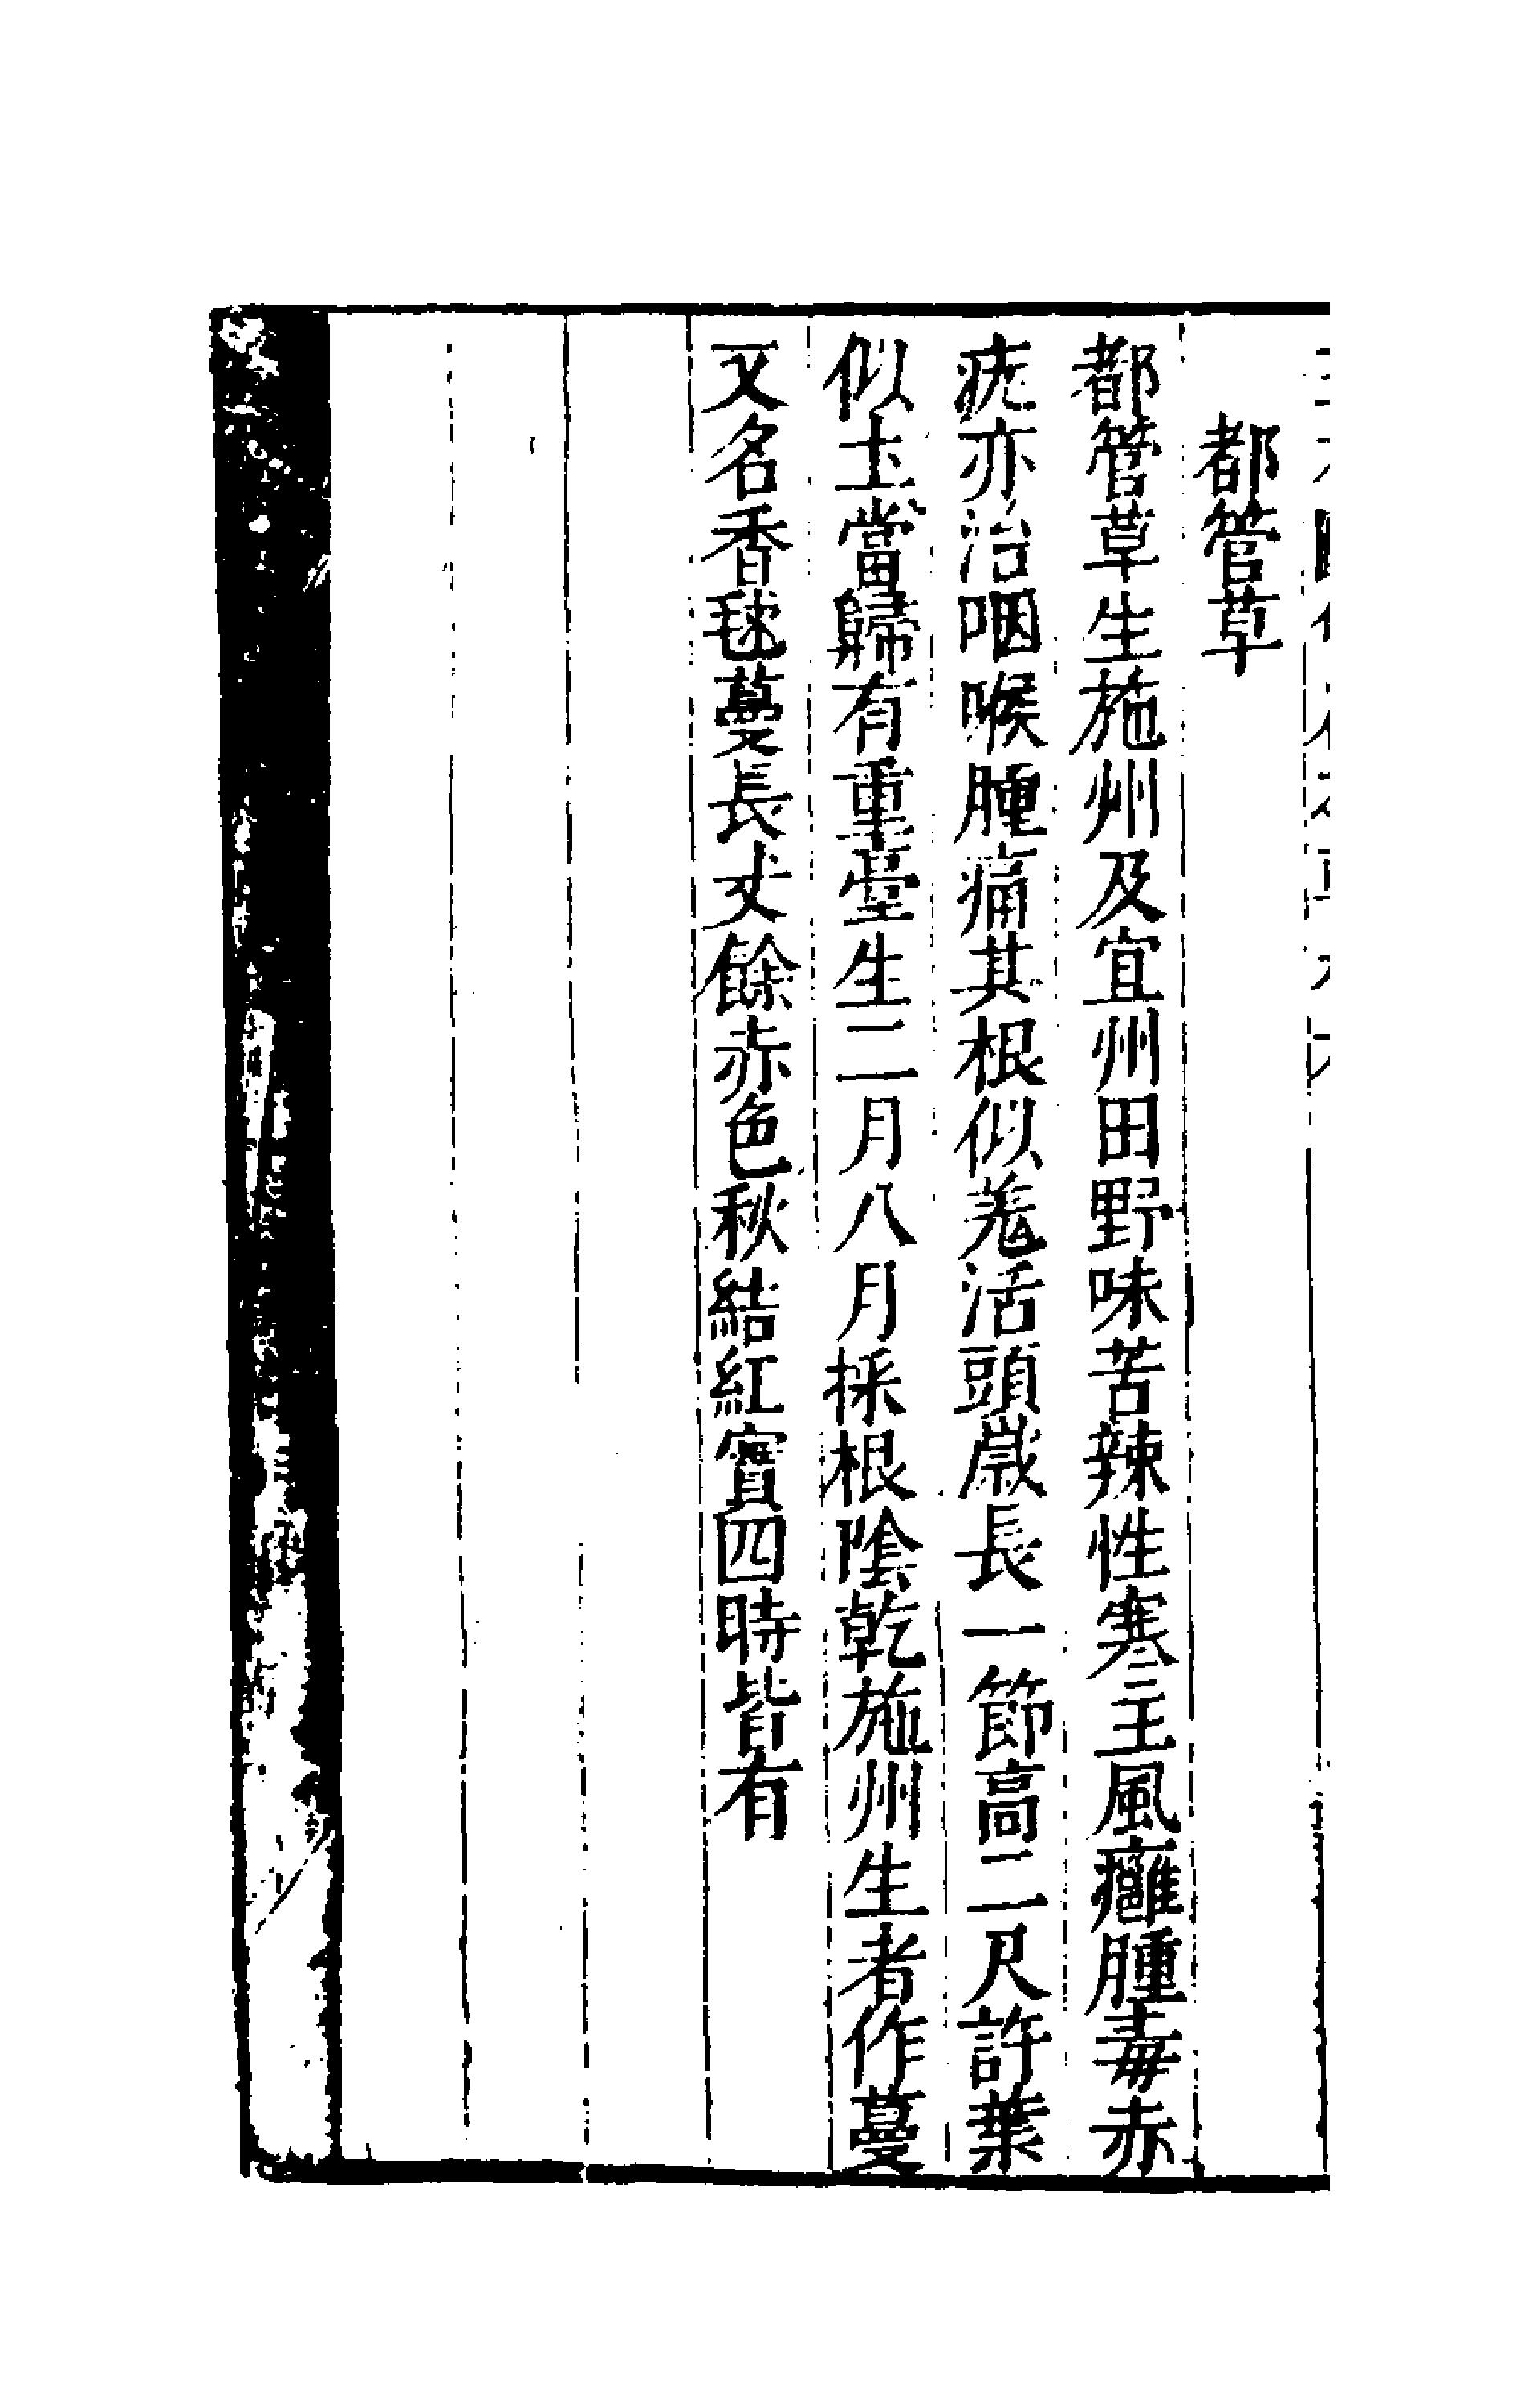 都管草
都管草生施州及宜州田野味苦辣性寒主風癰腫毒赤
疣亦治咽喉腫痛其根似羌活頭歲長一節高二尺許葉
似土當歸有重臺生二月八月採根陰乾施州生者作蔓
又名香毬蔓長丈餘赤色秋結紅實四時皆有